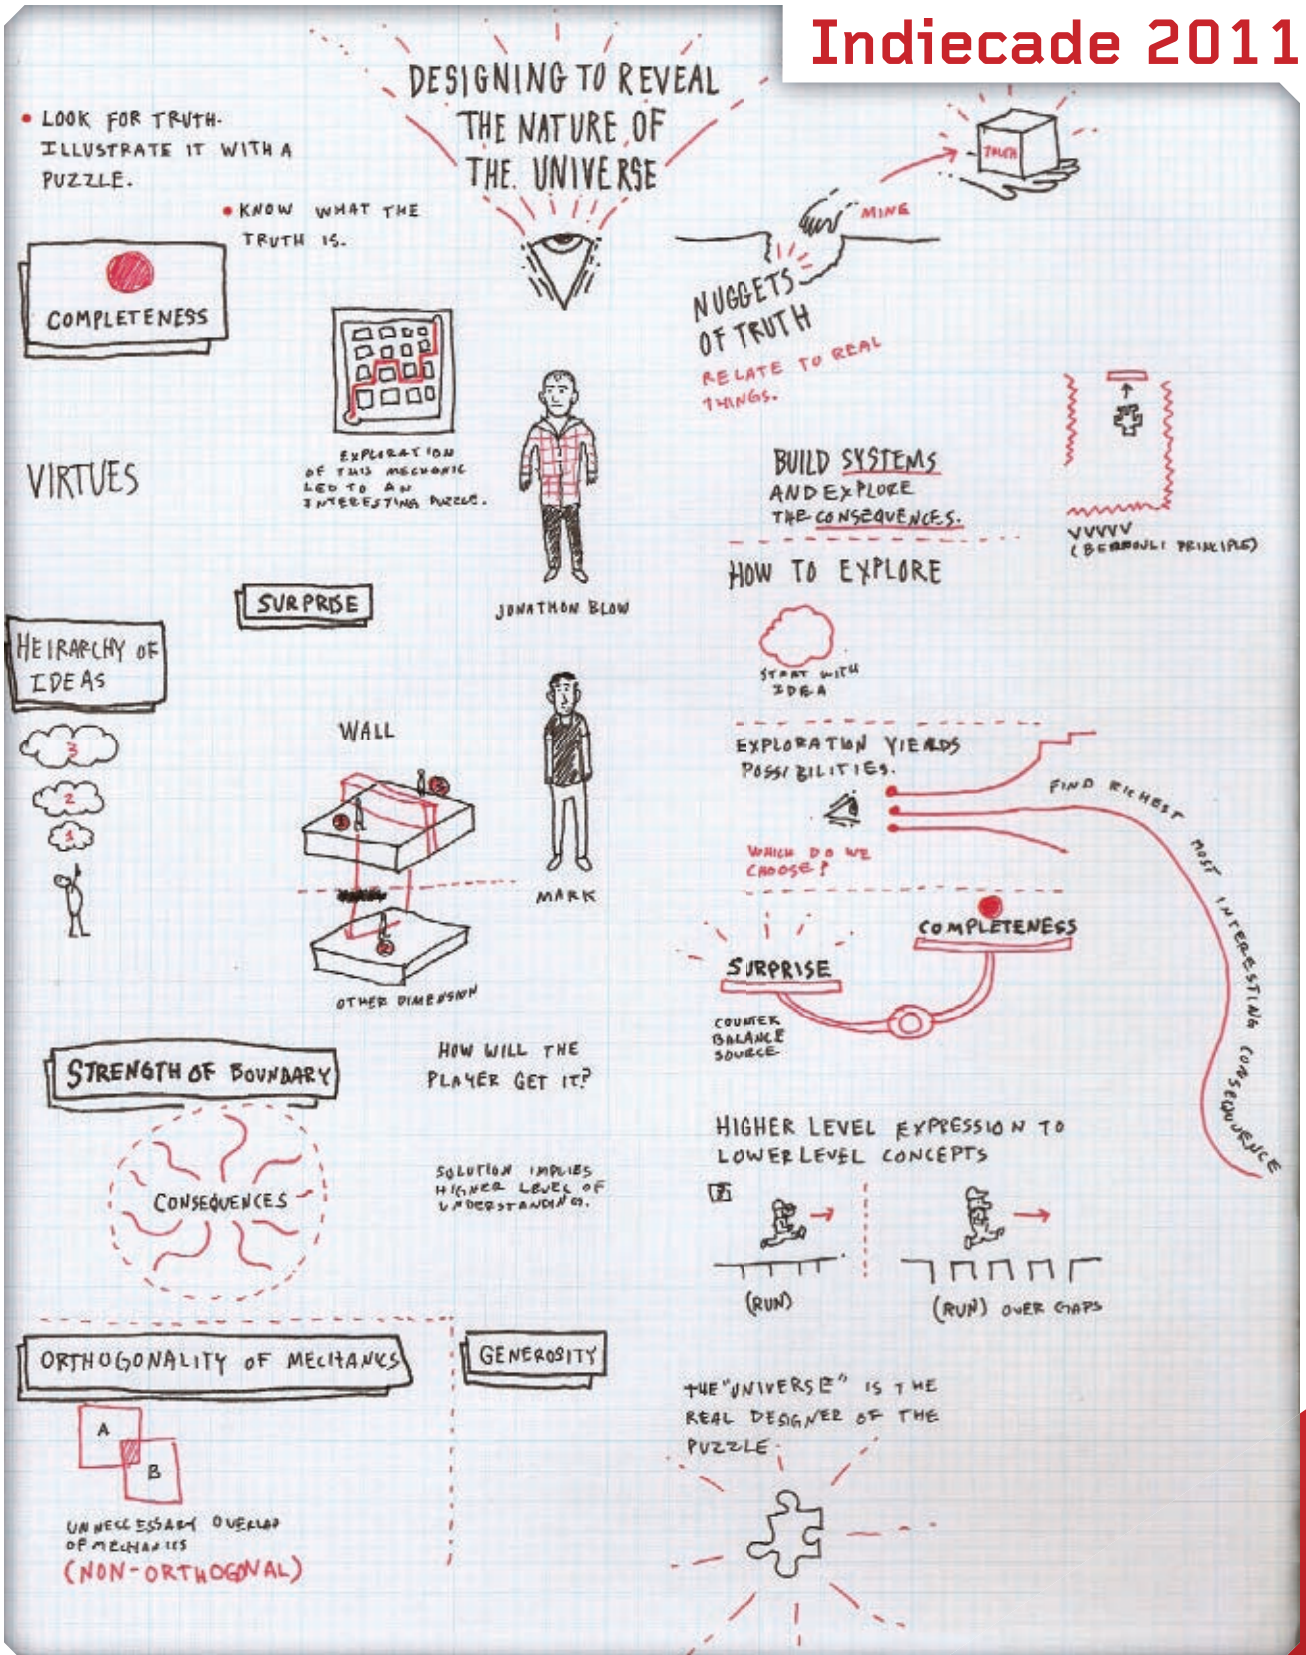 Indiecade 2011
DESIGNING TO REVEAL
THE NATURE OF
THE UNIVERSE
• LOOK FOR TRUTH.
ILLUSTRATE IT WITH A
PUZZLE.
• KNOW WHAT THE
TRUTH IS.
COMPLETENESS
EXPLORATION
OF THIS MECHANIC
LED TO AN
INTERESTING PUZZLE.
VIRTUES
SURPRISE
JONATHON BLOW
HEIRARCHY OF
IDEAS
3
2
1
WALL
1
3
2
OTHER DIMENSION
MARK
STRENGTH OF BOUNDARY
CONSEQUENCES
HOW WILL THE
PLAYER GET IT?
SOLUTION IMPLIES
HIGHER LEVEL OF
UNDERSTANDING.
ORTHOGONALITY OF MECHANICS
A
B
UNNECESSARY OVERLAP
OF MECHANICS
(NON-ORTHOGONAL)
GENEROSITY
TRUTH
MINE
NUGGETS
OF TRUTH
RELATE TO REAL
THINGS.
BUILD SYSTEMS
AND EXPLORE
THE CONSEQUENCES.
VVVVV
(BERNOULI PRINCIPLE)
HOW TO EXPLORE
START WITH
IDEA
EXPLORATION YIELDS
POSSIBILITIES.
WHICH DO WE
CHOOSE?
FIND RICHEST MOST INTERESTING CONSEQUENCE
COMPLETENESS
SURPRISE
COUNTER
BALANCE
SOURCE
HIGHER LEVEL EXPRESSION TO
LOWER LEVEL CONCEPTS
?
(RUN)
(RUN) OVER GAPS
THE "UNIVERSE" IS THE
REAL DESIGNER OF THE
PUZZLE.